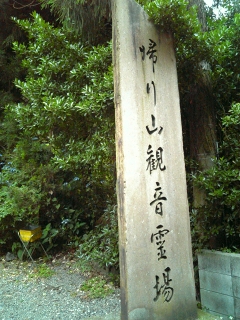 帰り山観音霊場